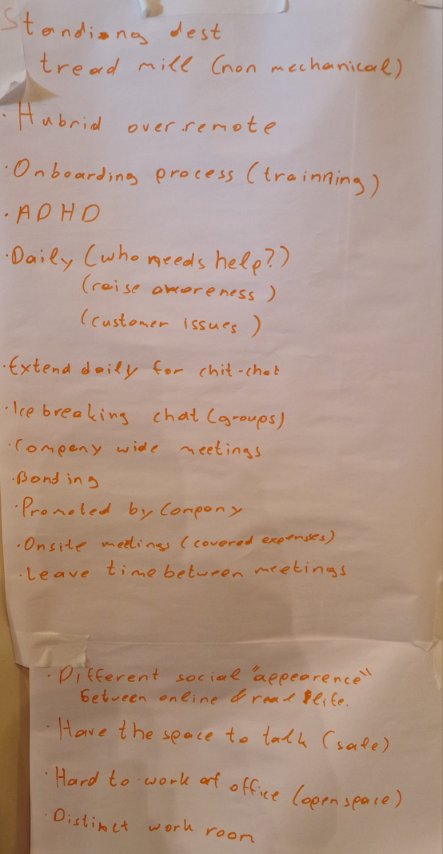 Standiong dest
tread mill (non mechanical)
· Hubrid over remote
· Onboarding process (trainning)
· ADHD
· Daily (who needs help?)
(raise awareness)
(customer issues)
· Extend daily for chit-chat
· Ice breaking chat (groups)
· Company wide meetings
· Bonding
· Promoted by Company
· Onsite meetings (covered expenses)
· Leave time between meetings
· Different social "appearence"
between online & real life.
· Have the space to talk (safe)
· Hard to work at office (open space)
· Distinct work room